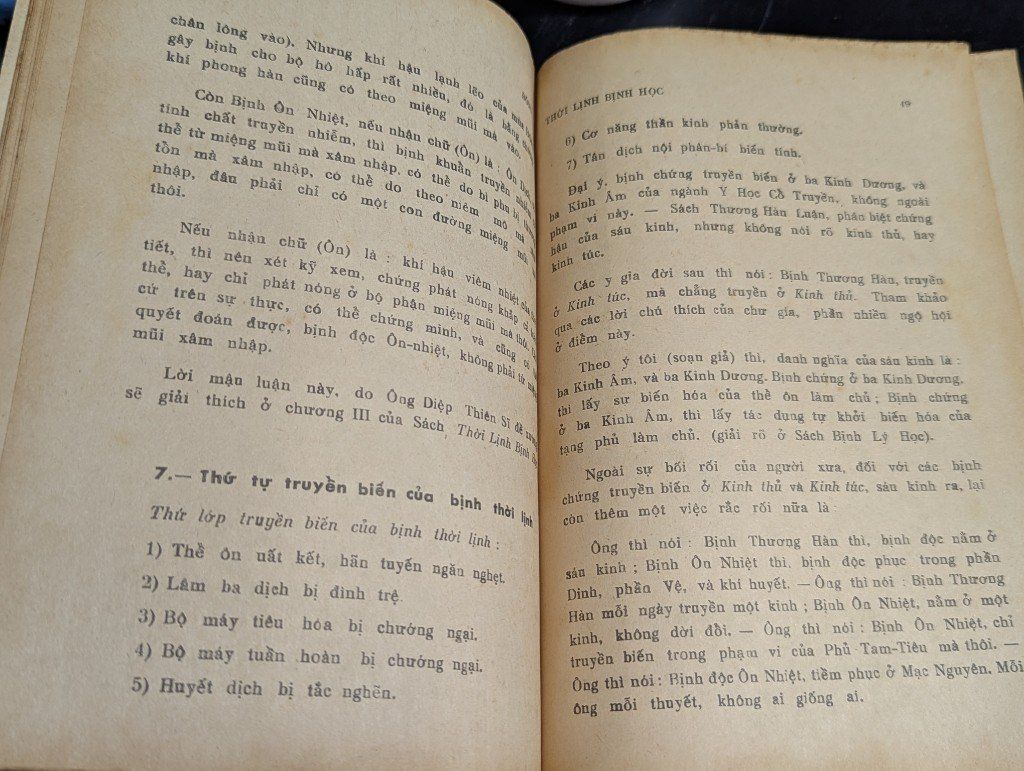 chân lông vào). Nhưng khí hậu lạnh lẽo của mùa
gây bịnh cho bộ hô hấp rất nhiều, đó là bằng chứng
khí phong hàn cũng có theo miệng mũi mà vào.
Còn Bịnh Ôn Nhiệt, nếu nhận chữ (Ôn) là : Ôn Dịch
tính chất truyền nhiễm, thì bịnh khuẩn truyền nhiễm
thể từ miệng mũi mà xâm nhập, có thể do bì phu bị
tồn mà xâm nhập, có thể do theo niêm mô mà
nhập, đâu phải chỉ có một con đường miệng mũi mà
thôi.
Nếu nhận chữ (Ôn) là : khí hậu viêm nhiệt của
tiết, thì nên xét kỹ xem, chứng phát nóng khắp cả
thể, hay chỉ phát nóng ở bộ phận miệng mũi mà thôi.
cứ trên sự thực, có thể chứng minh, và cũng có
quyết đoán được, bịnh độc Ôn-nhiệt, không phải từ
mũi xâm nhập.
Lời mậu luận này, do Ông Diệp Thiên Sĩ đề xướng
sẽ giải thích ở chương III của Sách Thời Lịnh Bịnh
7.— Thứ tự truyền biến của bịnh thời lịnh
Thứ lớp truyền biến của bịnh thời lịnh :
1) Thể ôn uất kết, hãn tuyến ngăn nghẹt.
2) Lâm ba dịch bị đình trệ.
3) Bộ máy tiêu hóa bị chướng ngại.
4) Bộ máy tuần hoàn bị chướng ngại.
5) Huyết dịch bị tắc nghẽn.
THỜI LỊNH BỊNH HỌC 49
6) Cơ năng thần kinh phản thường.
7) Tân dịch nội phân-bí biến tính.
Đại ý, bịnh chứng truyền biến ở ba Kinh Dương, và
ba Kinh Âm của ngành Y Học Cổ Truyền, không ngoài
phạm vi này. — Sách Thương Hàn Luận, phân biệt chứng
hậu của sáu kinh, nhưng không nói rõ kinh thủ, hay
kinh túc.
Các y gia đời sau thì nói : Bịnh Thương Hàn, truyền
ở Kinh túc, mà chẳng truyền ở Kinh thủ. Tham khảo
qua các lời chú thích của chư gia, phần nhiên ngộ hội
ở điểm này.
Theo ý tôi (soạn giả) thì, danh nghĩa của sáu kinh là :
ba Kinh Âm, và ba Kinh Dương. Bịnh chứng ở ba Kinh Dương,
thì lấy sự biến hóa của thể ôn làm chủ ; Bịnh chứng
ở ba Kinh Âm, thì lấy tác dụng tự khởi biến hóa của
tạng phủ làm chủ. (giải rõ ở Sách Bịnh Lý Học).
Ngoài sự bối rối của người xưa, đối với các bịnh
chứng truyền biến ở Kinh thủ và Kinh túc, sáu kinh ra, lại
còn thêm một việc rắc rối nữa là :
Ông thì nói : Bịnh Thương Hàn thì, bịnh độc nằm ở
sáu kinh ; Bịnh Ôn Nhiệt thì, bịnh độc phục trong phần
Dinh, phần Vệ, và khí huyết. — Ông thì nói : Bịnh Thương
Hàn mỗi ngày truyền một kinh ; Bịnh Ôn Nhiệt, nằm ở một
kinh, không dời đổi. — Ông thì nói : Bịnh Ôn Nhiệt, chỉ
truyền biến trong phạm vi của Phủ Tam-Tiêu mà thôi. —
Ông thì nói : Bịnh độc Ôn Nhiệt, tiềm phục ở Mạc Nguyên. Mỗi
ông mỗi thuyết, không ai giống ai.